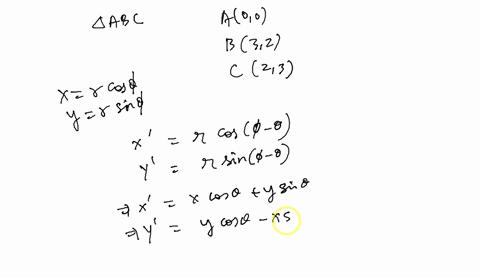 △ABC A(0,0)
B(3,2)
C(2,3)
x = r cosϕ
y = r sinϕ
x' = r cos(ϕ-θ)
y' = r sin(ϕ-θ)
⇒ x' = x cosθ + y sinθ
⇒ y' = y cosθ - x s